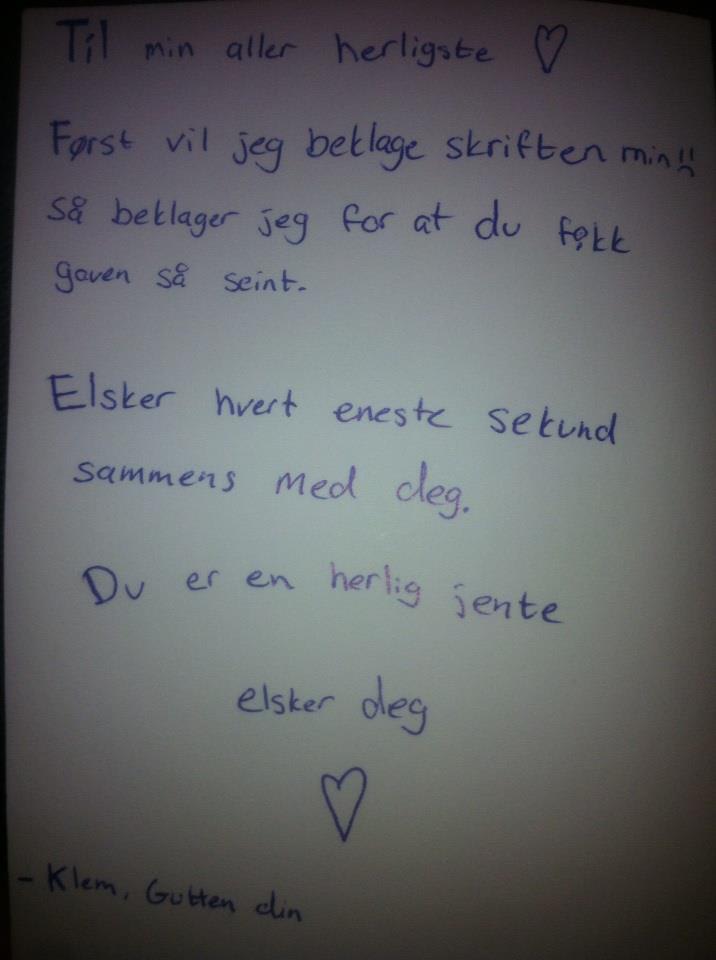 Til min aller herligste ♡
Først vil jeg beklage skriften min!!
så beklager jeg for at du fikk
gaven så seint.
Elsker hvert eneste sekund
sammens med deg.
Du er en herlig jente
elsker deg
♡
- Klem, Gutten din